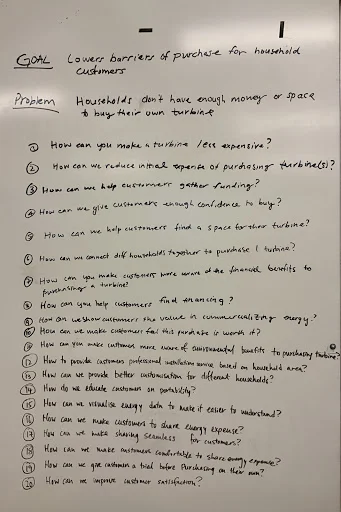 GOAL Lowers barriers of purchase for household
customers
Problem Households don't have enough money or space
to buy their own turbine
① How can you make a turbine less expensive?
② How can we reduce initial expense of purchasing turbine(s)?
③ How can we help customers gather funding?
④ How can we give customers enough confidence to buy?
⑤ How can we help customers find a space for their turbine?
⑥ How can we connect diff households together to purchase 1 turbine?
⑦ How can you make customers more aware of the financial benefits to
purchasing a turbine?
⑧ How can you help customers find financing?
⑨ How can we show customers the value in commercializing energy?
⑩ How can we make customers feel this purchase is worth it?
⑪ How can you make customers more aware of environmental benefits to purchasing turbine?
⑫ How to provide customers professional installation service based on household area?
⑬ How can we provide better customisation for different households?
⑭ How do we educate customers on portability?
⑮ How can we visualise energy data to make it easier to understand?
⑯ How can we make customers to share energy expense?
⑰ How can we make sharing seamless for customers?
⑱ How can we make customers comfortable to share energy expense?
⑲ How can we give customers a trial before purchasing on their own?
⑳ How can we improve customer satisfaction?